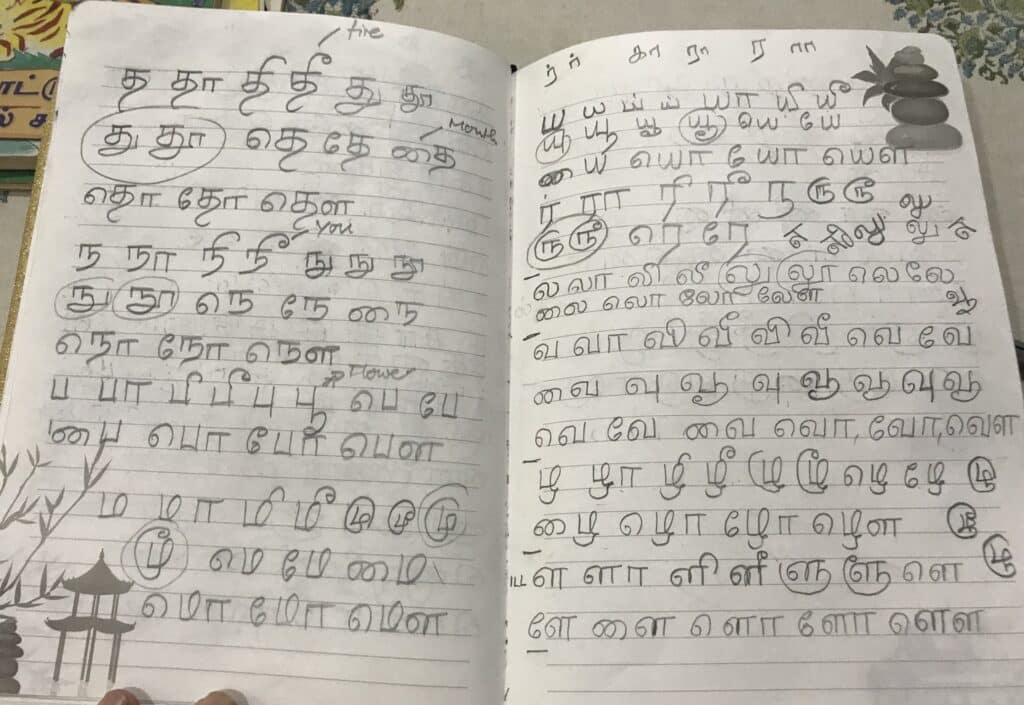 fire
த தா தி தீ து தூ
து தூ தெ தே தை
Month
தொ தோ தௌ
You
ந நா நி நீ நு நு நூ
நு நூ நெ நே நை
நொ நோ நௌ
Flower
ப பா பி பீ பு பூ பெ பே
பை பொ போ பௌ
ம மா மி மீ மு மு மு
மூ மெ மே மை
மொ மோ மௌ
ர் ர் கா ரா ர ரா
ய ய ய் ய் யா யி யீ
யு யூ யு யூ யெ யே
யை யொ யோ யௌ
ர் ரா ரி ரீ ரு ரு ரூ
ரு ரூ ரெ ரே
ல லா லி லீ லு லூ லெ லே
லை லொ லோ லௌ
வ வா வி வீ வி வீ வெ வே
வை வு வூ வு வூ வூ வு வூ
வெ வே வை வொ, வோ, வௌ
ழ ழா ழி ழீ ழு ழூ ழெ ழே ழு
ழை ழொ ழோ ழௌ ழூ
ள ளா ளி ளீ ளு ளூ ளெ
ளே ளை ளொ ளோ ளௌ